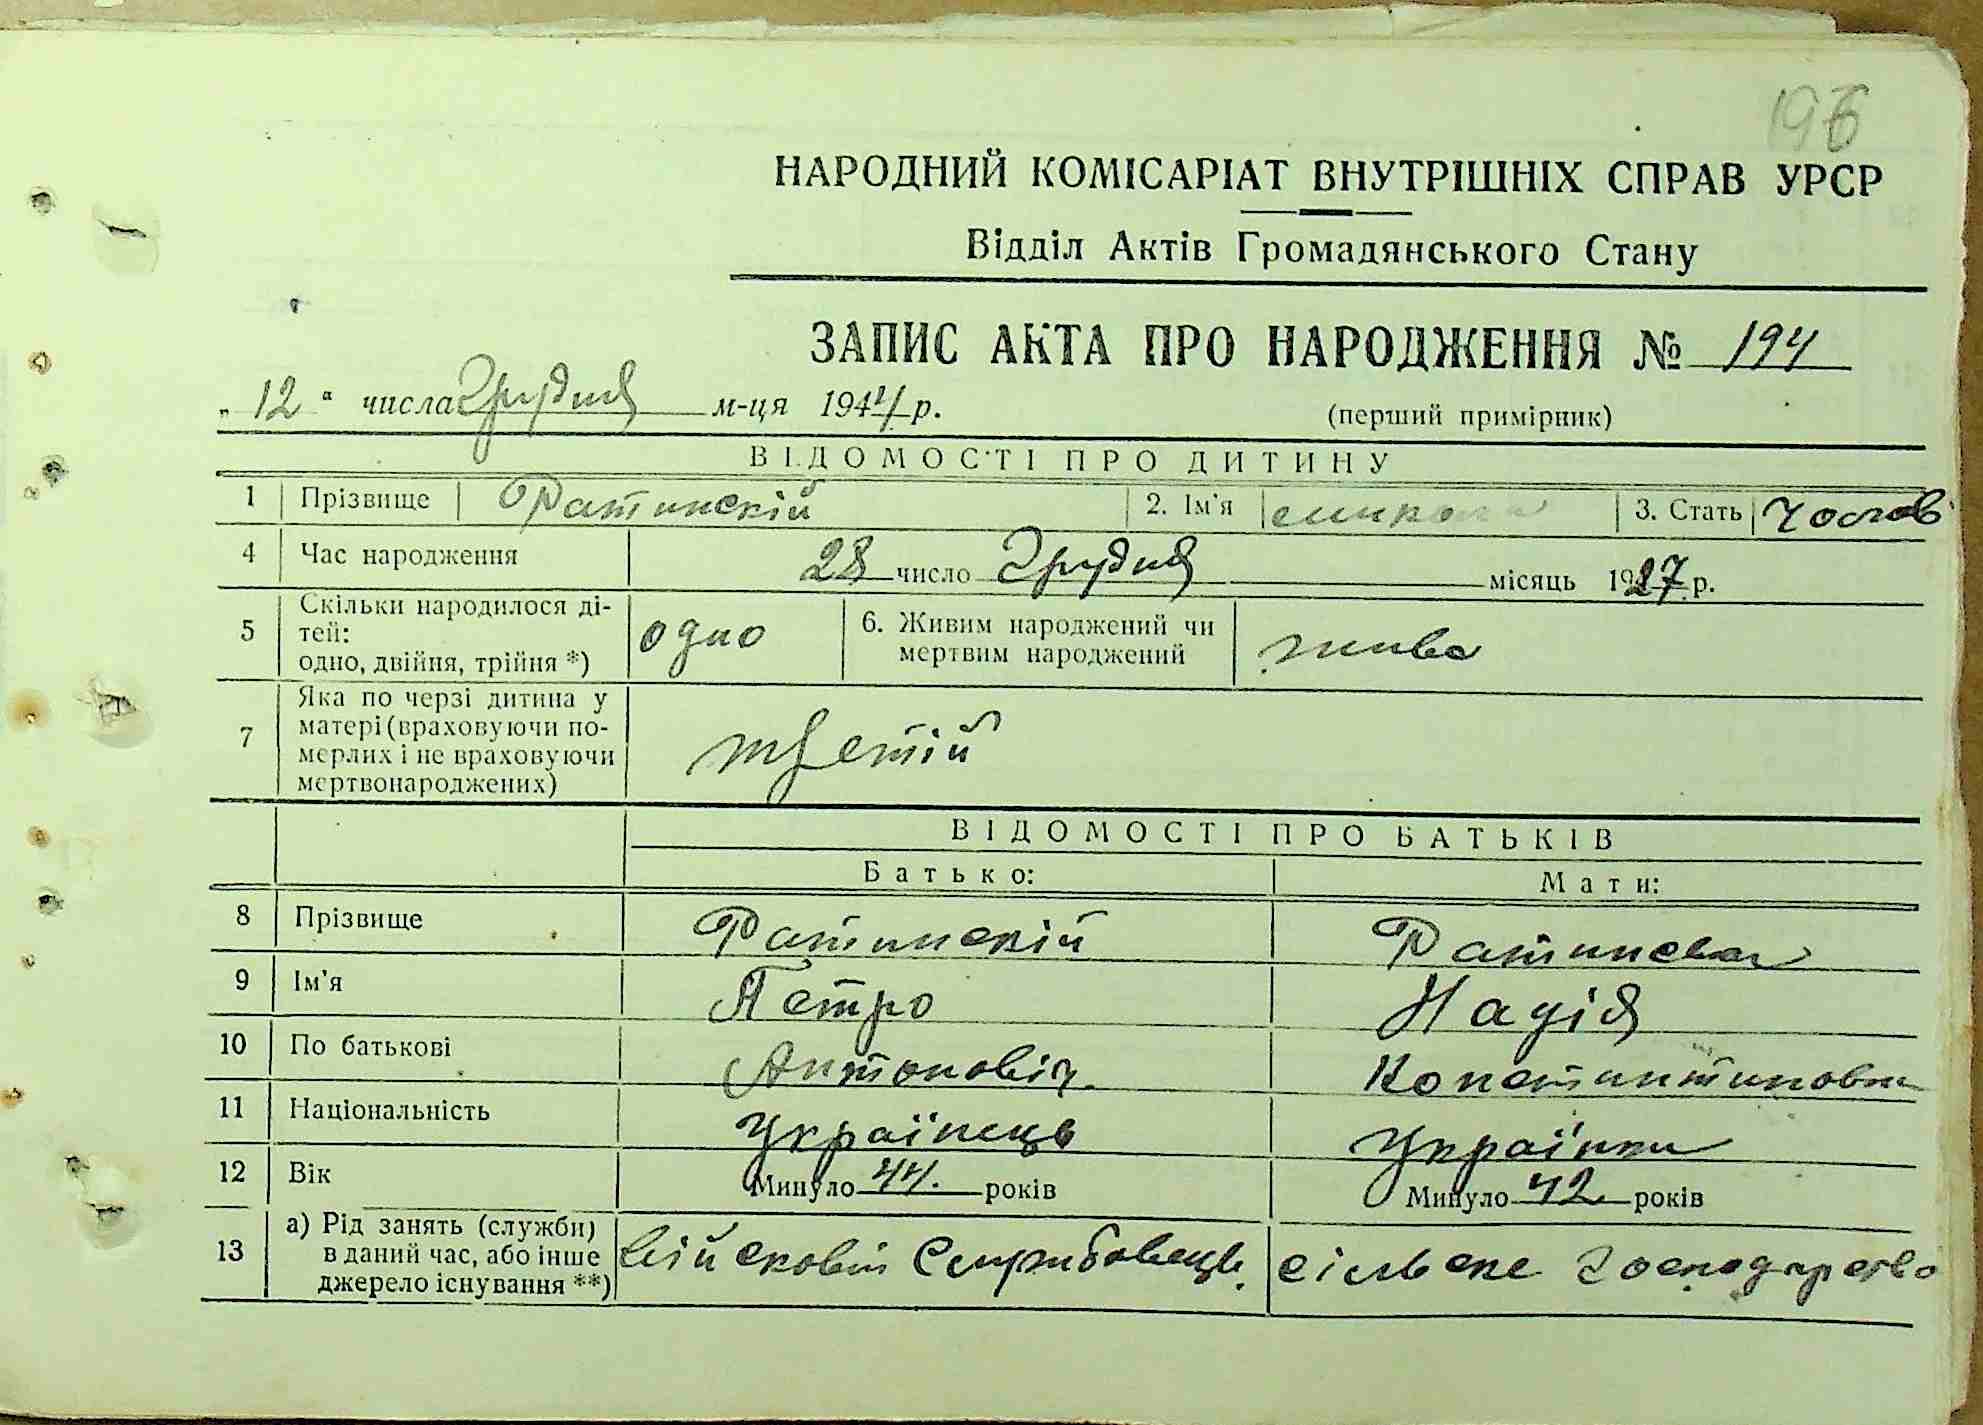 196
НАРОДНИЙ КОМІСАРІАТ ВНУТРІШНІХ СПРАВ УРСР
Відділ Актів Громадянського Стану
ЗАПИС АКТА ПРО НАРОДЖЕННЯ № 194
„12“ числа Грудня м-ця 1944 р.
(перший примірник)
ВІДОМОСТІ ПРО ДИТИНУ
1 Прізвище Ратинскій 2. Ім'я 3. Стать чолов
4 Час народження 28 число Грудня місяць 1927 р.
5 Скільки народилося ді-
тей:
одно, двійня, трійня *) одно 6. Живим народжений чи
мертвим народжений живе
7 Яка по черзі дитина у
матері (враховуючи по-
мерлих і не враховуючи
мертвонароджених) третій
ВІДОМОСТІ ПРО БАТЬКІВ
Батько: Мати:
8 Прізвище Ратинскій Ратинска
9 Ім'я Петро Надія
10 По батькові Антоновіч. Константиновна
11 Національність Українець Українка
12 Вік Минуло 44. років Минуло 42 років
13 а) Рід занять (служби)
в даний час, або інше
джерело існування **) війсковій Службовець. сільське господарство